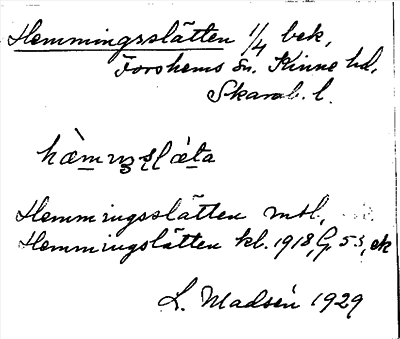 Hemmingsslätten 1/4 bek,
Forshems sn. Kinne hd,
Skarab. l.
Hemmingsslätten mtl,
Hemmingslätten kl. 1918, G 53, ek
L. Madsén 1929